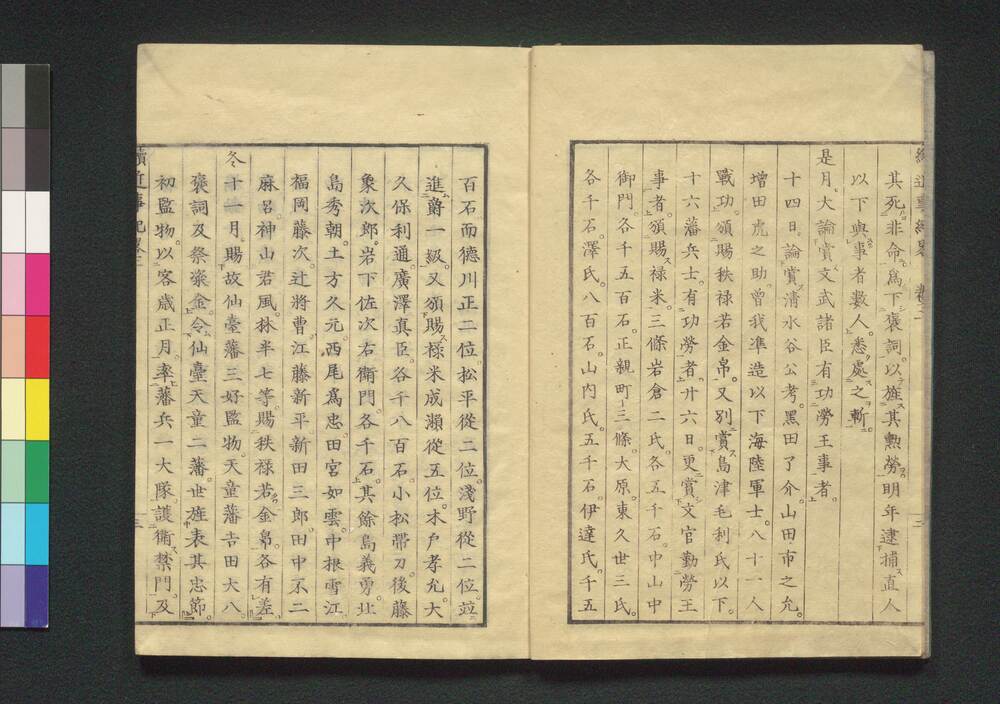 其死非命爲下褒詞以旌其勲勞明年逮捕直人
以下與事者數人悉處之斬
是月大論賞文武諸臣有功勞王事者
十四日論賞清水谷公考黑田了介山田市之允
增田虎之助曾我凖造以下海陸軍士八十一人
戰功頒賜秩祿若金帛又別賞島津毛利氏以下
十六藩兵士有功勞者廿六日更賞文官勤勞王
事者頒賜祿米三條岩倉二氏各五千石中山中
御門各千五百石正親町三條大原東久世三氏
各千石澤氏八百石山內氏五千石伊達氏千五
百石而德川正二位松平從二位淺野從二位竝
進爵一級又頒賜祿米成瀨從五位木戶孝允大
久保利通廣澤真臣各千八百石小松帶刀後藤
象次郎岩下佐次右衞門各千石其餘島義勇北
島秀朝土方久元西尾爲忠田宮如雲中根雪江
福岡藤次辻將曹江藤新平新田三郎田中不二
麻呂神山君風林半七等賜秩祿若金帛各有差
冬十一月賜故仙臺藩三好監物天童藩吉田大八
褒詞及祭粢金令仙臺天童二藩世旌表其忠節
初監物以客歲正月率藩兵一大隊護衞禁門及
三